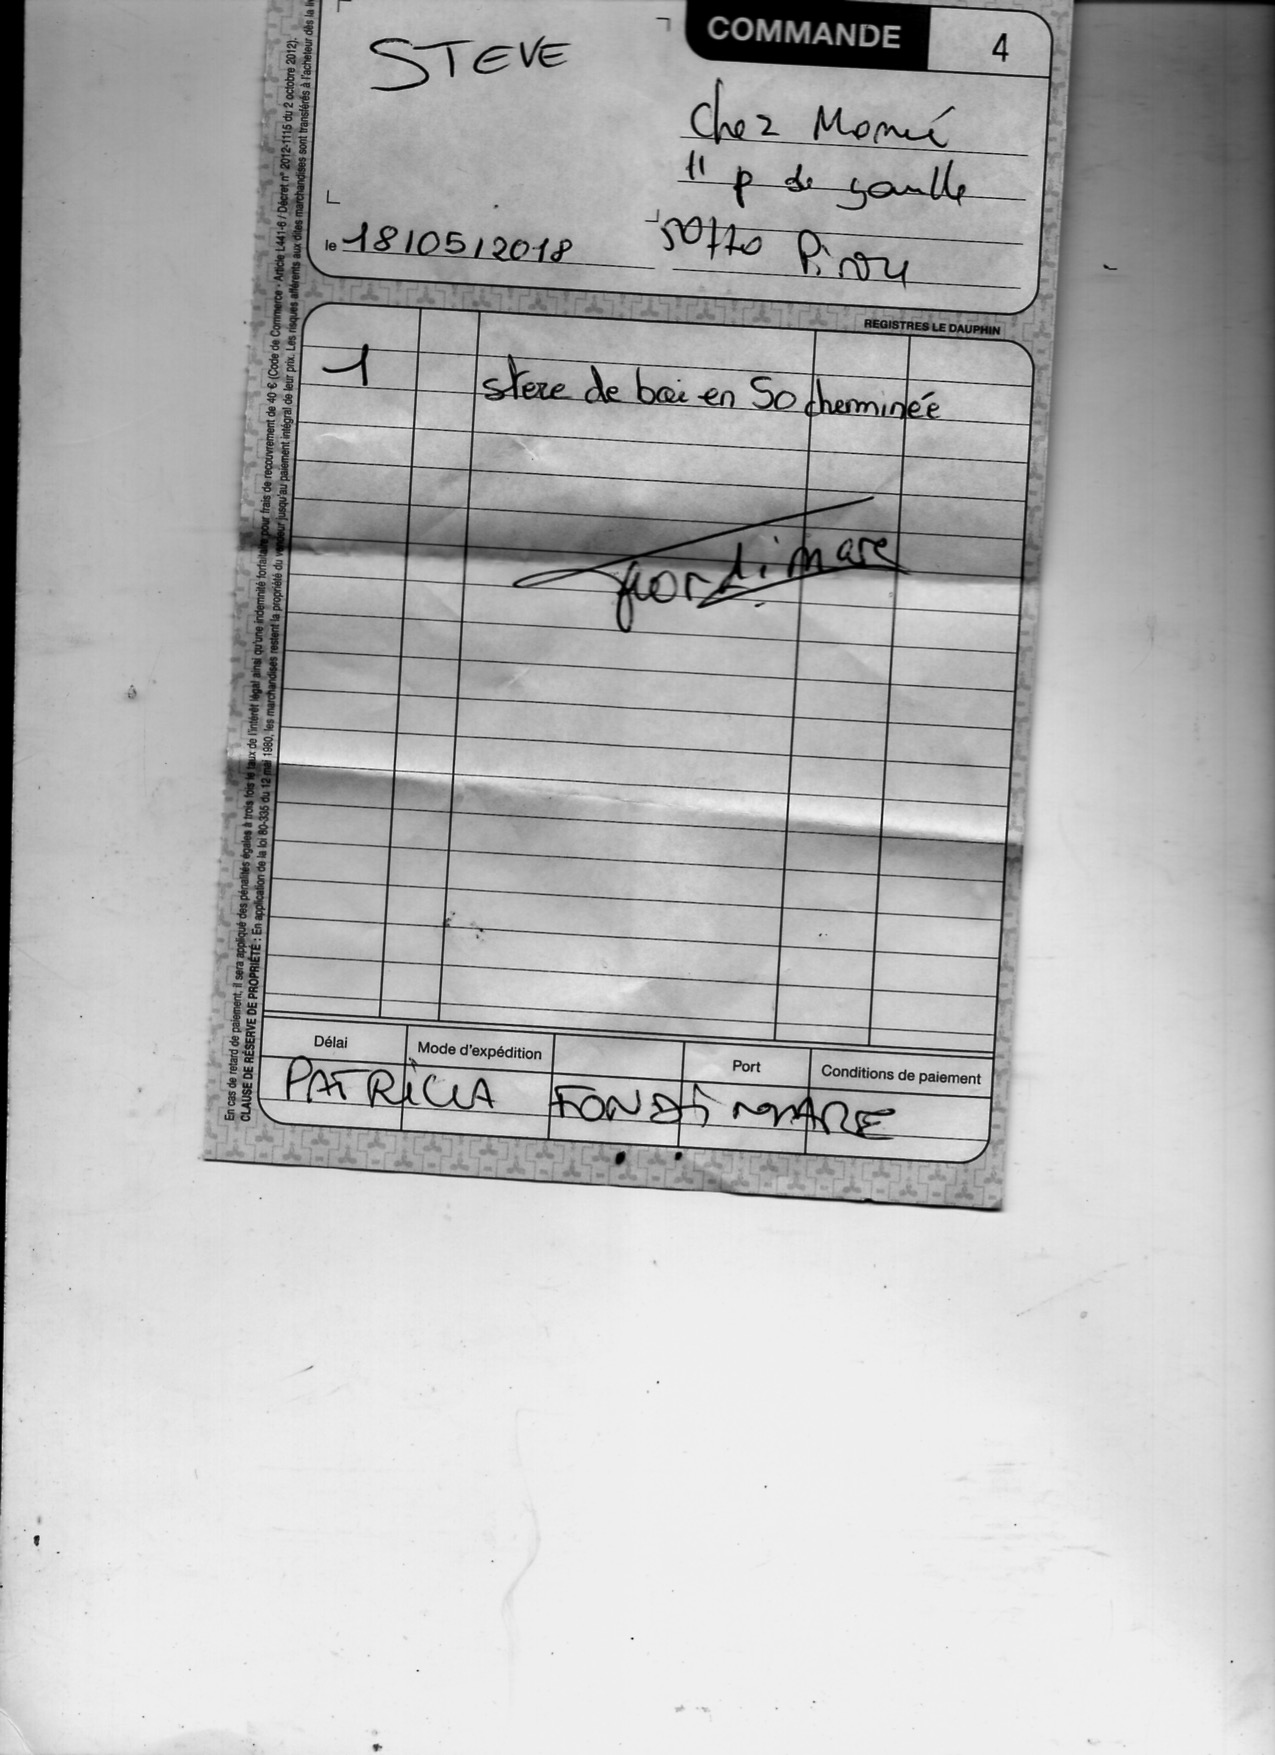 COMMANDE 4
STEVE
chez Momé
11 p de gaulle
50770 Pirou
le 18/05/2018
REGISTRES LE DAUPHIN
1 stere de boi en 50 cheminée
fondimare
Délai Mode d'expédition Port Conditions de paiement
PATRiCIA FONDiMARE
En cas de retard de paiement, il sera appliqué des pénalités égales à trois fois le taux de l'intérêt légal ainsi qu'une indemnité forfaitaire pour frais de recouvrement de 40 € (Code de Commerce - Article L441-6 / Décret n° 2012-1115 du 2 octobre 2012).
CLAUSE DE RÉSERVE DE PROPRIÉTÉ : En application de la loi 80-335 du 12 mai 1980, les marchandises restent la propriété du vendeur jusqu'au paiement intégral de leur prix. Les risques afférents aux dites marchandises sont transférés à l'acheteur dès la